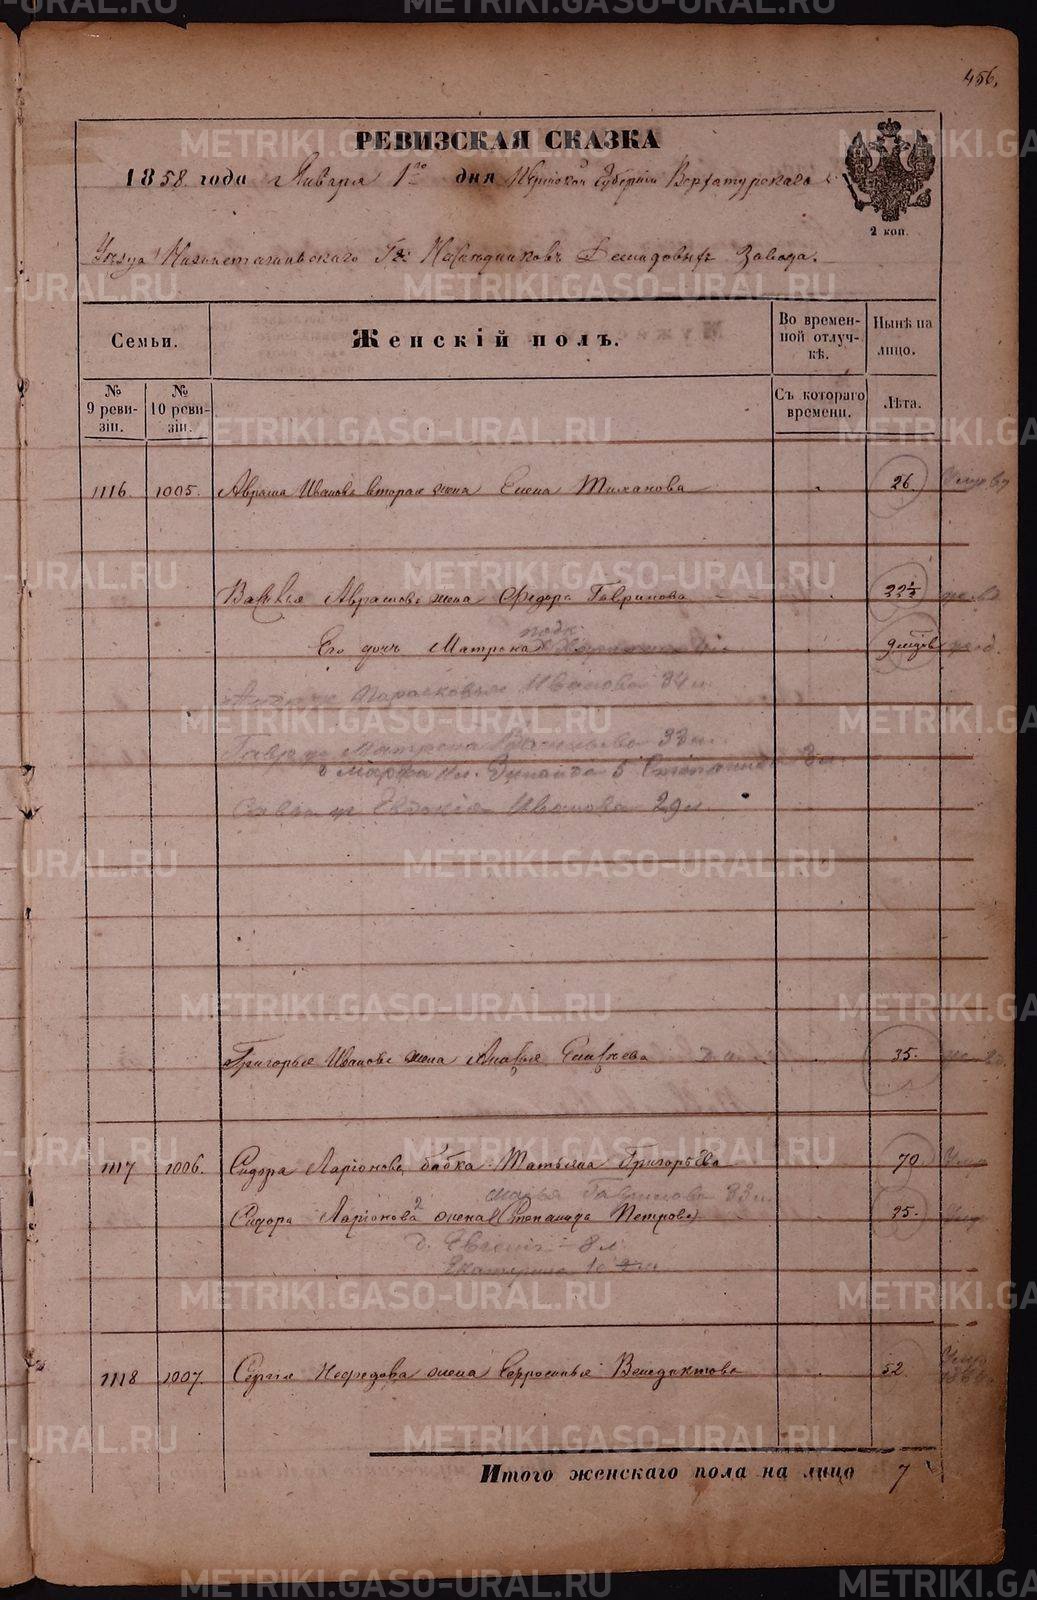 456.
РЕВИЗСКАЯ СКАЗКА
1858 года Января 1го дня Пермской Губерніи Верхотурскаго
2 коп.
Уѣзда Нижнетагильскаго Гг. Наслѣдниковъ Демидовыхъ Завода.
Семьи.
Женскій полъ.
Во временной отлучкѣ.
Нынѣ на лицо.
№ 9 ревизіи.
№ 10 ревизіи.
Съ котораго времени.
Лѣта.
1116 1005. Аврама Иванова вторая жена Елена Тиханова 26.
Василья Аврамова жена Федора Гаврилова 22½
Его дочь Матрена 9 мѣсяцов
Парасковья Иванова 34 л.
Гавр. ж. Матрена Васильева 33 л.
д. Марфа Зинаида 5 Степанида 3 л.
Савы ж Евдокія Иванова 29 л
Григорья Иванова жена Елисѣева 35.
1117 1006. Сидора Ларіонова бабка Татьяна Григорьева 70
Марья Гаврилова 33 л.
Сидора Ларіонова 2 жена (Степанида Петрова) 25.
д. Евгенія 8 л
Екатерина 10
1118 1007. Сергѣя Нефедова жена Ефросинья Венедиктова 52
Итого женскаго пола на лицо 7